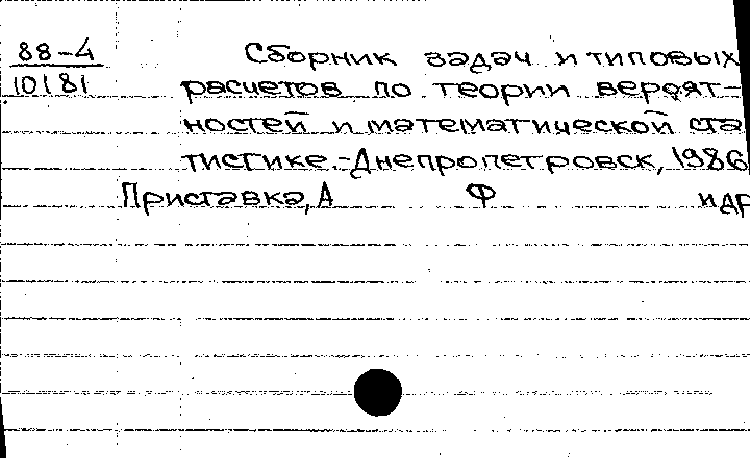 88-4 Сборник задач и типовых
10181 расчетов по теории вероят-
ностей и математической ста
тистике.-Днепропетровск, 1986
Приставка, А Ф и др